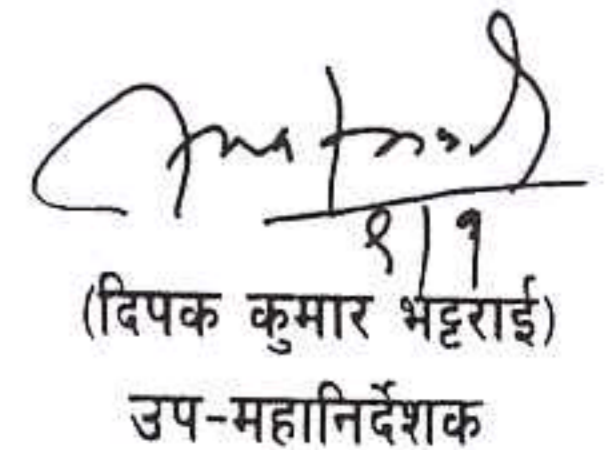 १|१
(दिपक कुमार भट्टराई)
उप-महानिर्देशक